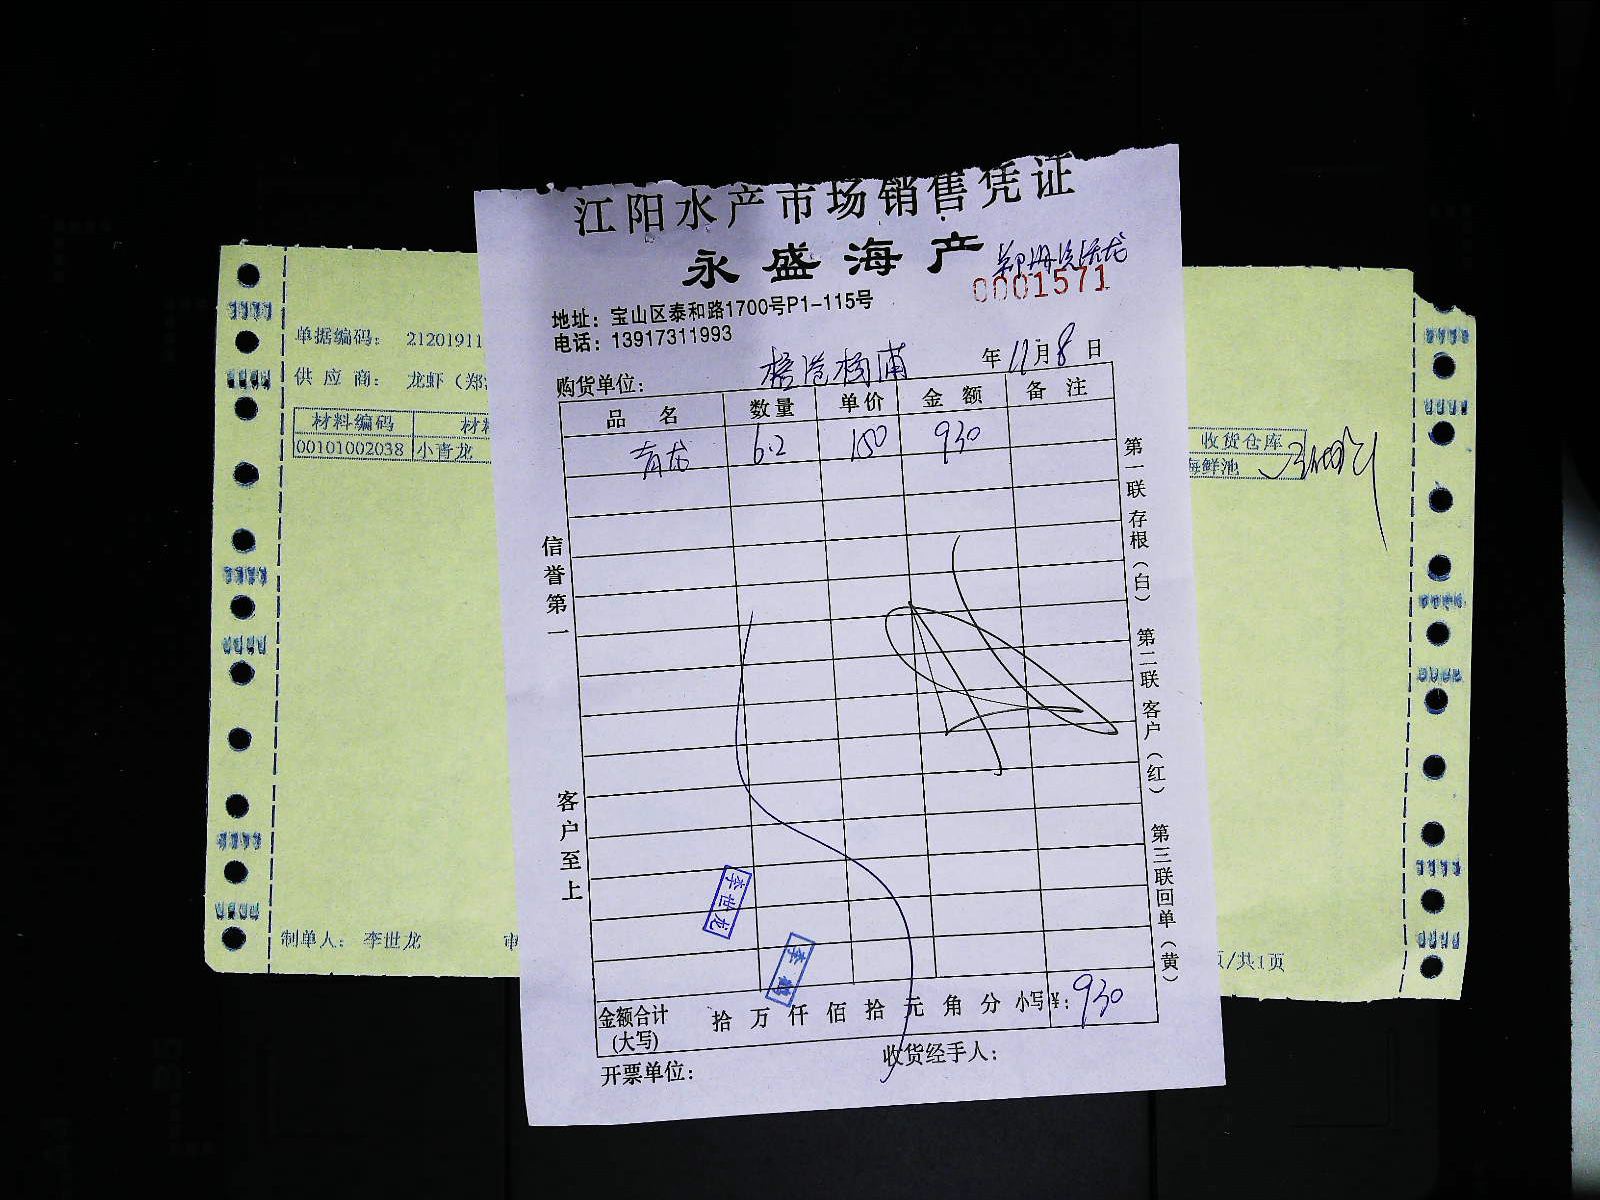 江阳水产市场销售凭证
永盛海产
0001571
地址：宝山区泰和路1700号P1-115号
电话：13917311993
购货单位：
年 11月 8 日
品名 数量 单价 金额 备注
青龙 6.2 150 930
信誉第一
客户至上
第一联 存根（白） 第二联 客户（红） 第三联 回单（黄）
李世龙
金额合计(大写) 拾 万 仟 佰 拾 元 角 分 小写¥：930
开票单位：
收货经手人：
单据编码： 21201911
供应商： 龙虾（郑
材料编码
00101002038 小青龙
收货仓库
海鲜池
制单人： 李世龙
页/共1页